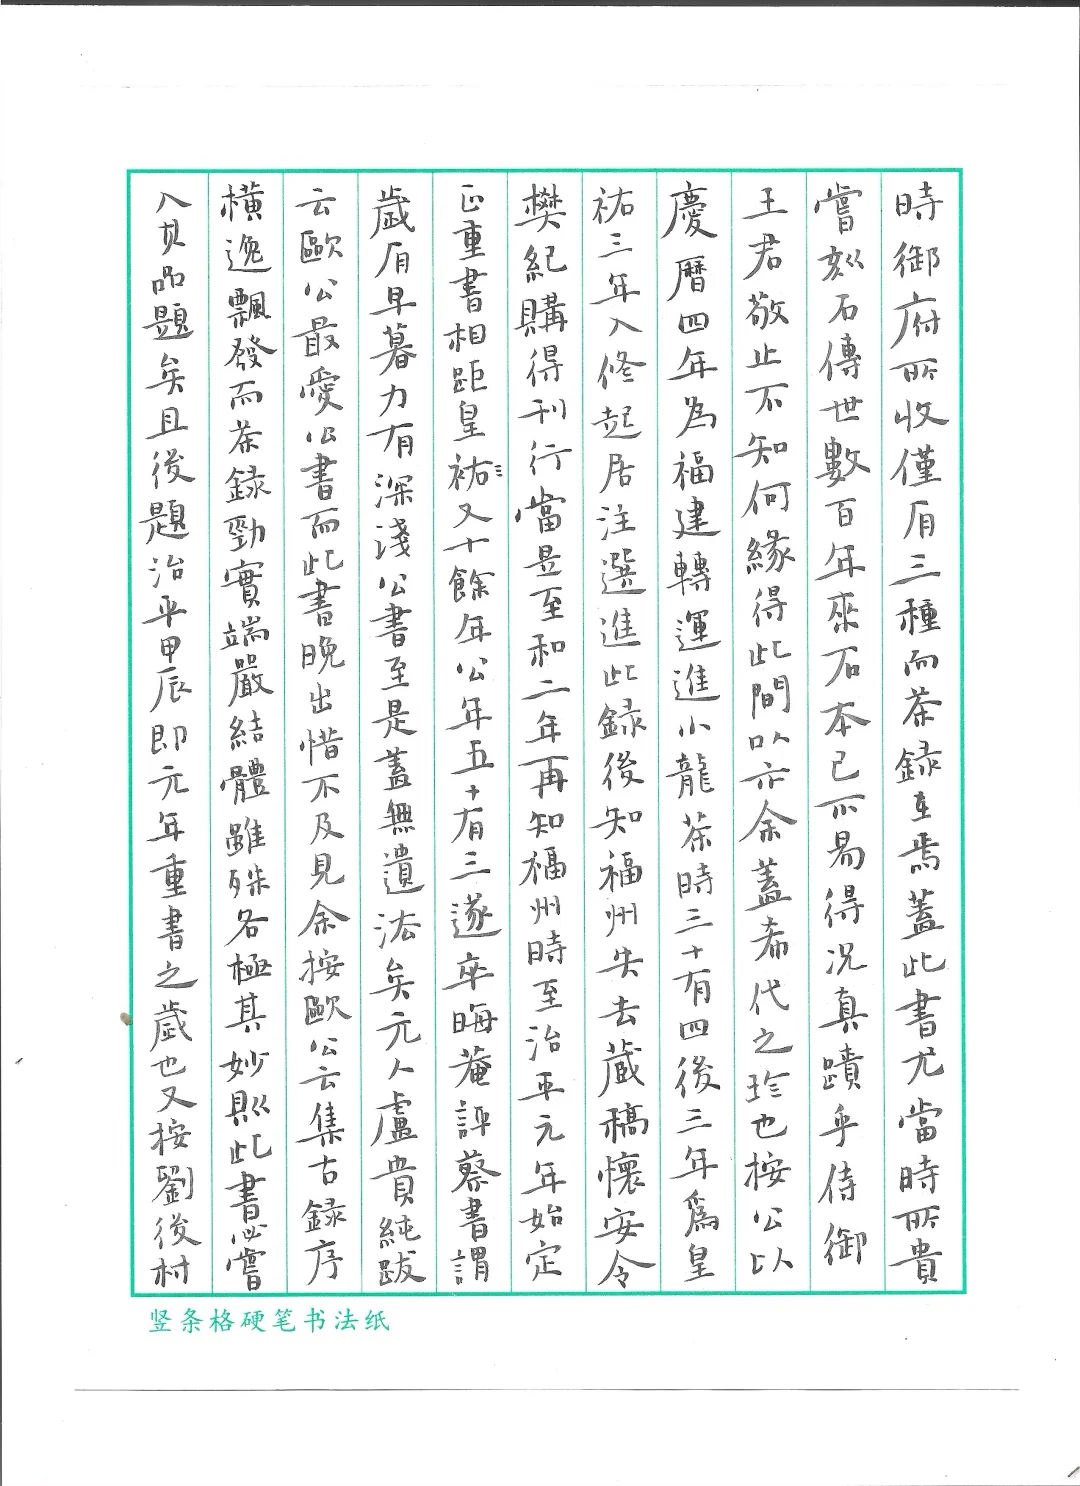 時御府所收僅有三種而茶録在焉蓋此書尤當時所貴
嘗刻石傳世數百年來石本已不易得况真蹟乎侍御
王君敬止不知何緣得此間以示余蓋希代之珍也按公以
慶曆四年為福建轉運進小龍茶時三十有四後三年爲皇
祐三年入修起居注選進此録後知福州失去蔵稿懷安令
樊紀購得刊行當是至和二年再知福州時至治平元年始定
正重書相距皇祐又十餘年公年五十有三遂卒晦菴評蔡書謂
歲有早暮力有深淺公書至是蓋無遺法矣元人盧貴純跋
云歐公最愛公書而此書晚出惜不及見余按歐公云集古録序
橫逸飄發而茶録勁實端嚴結體雖殊各極其妙則此書必嘗
入其品題矣且後題治平甲辰即元年重書之歲也又按劉後村
竖条格硬笔书法纸